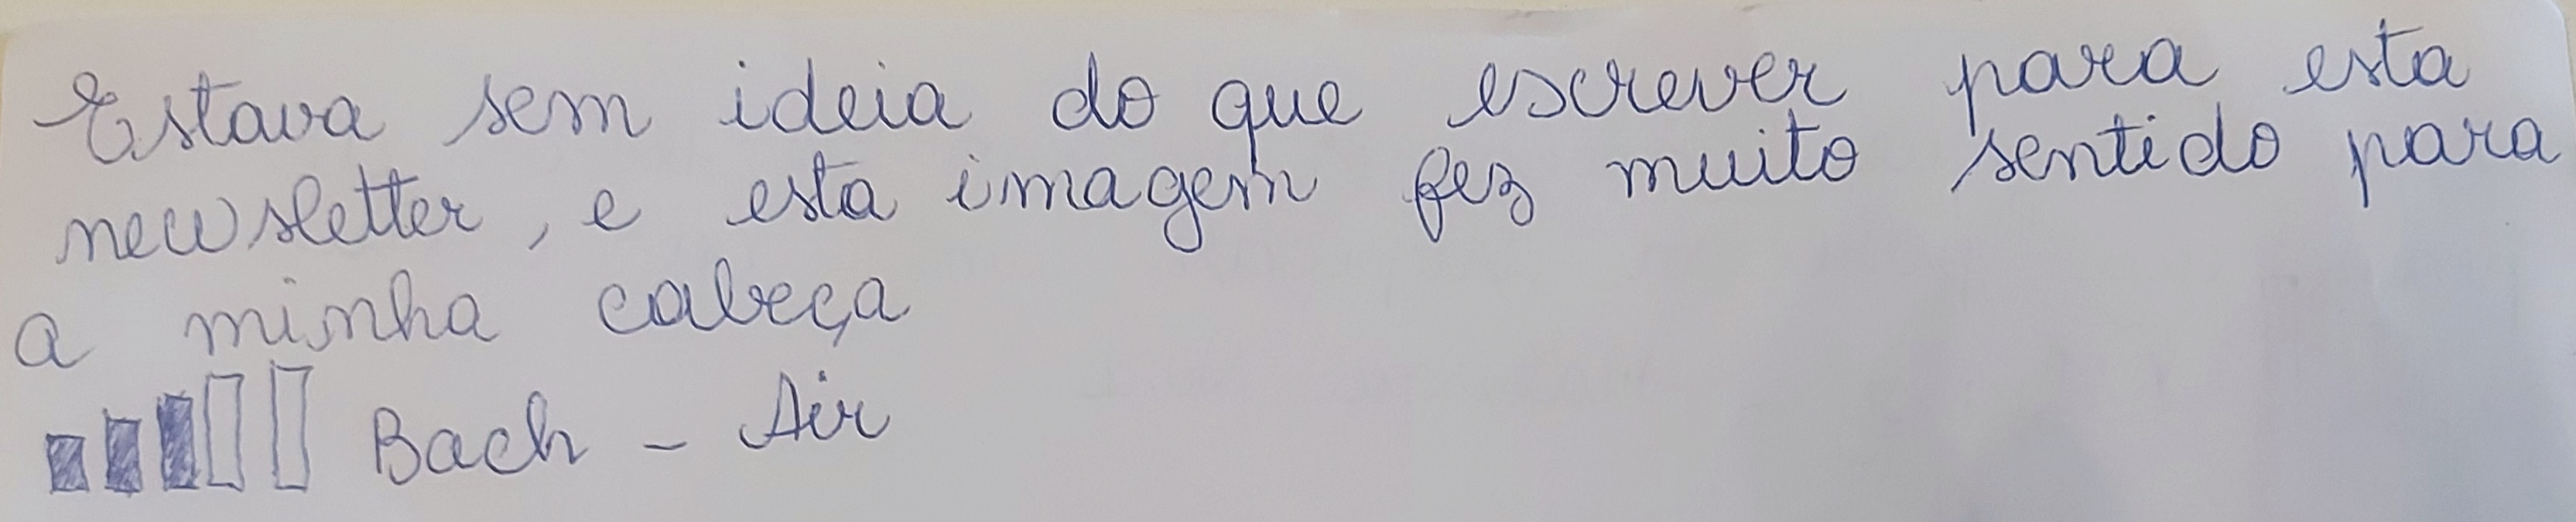 Estava sem ideia do que escrever para esta
newsletter, e esta imagem fez muito sentido para
a minha cabeça
Bach - Air